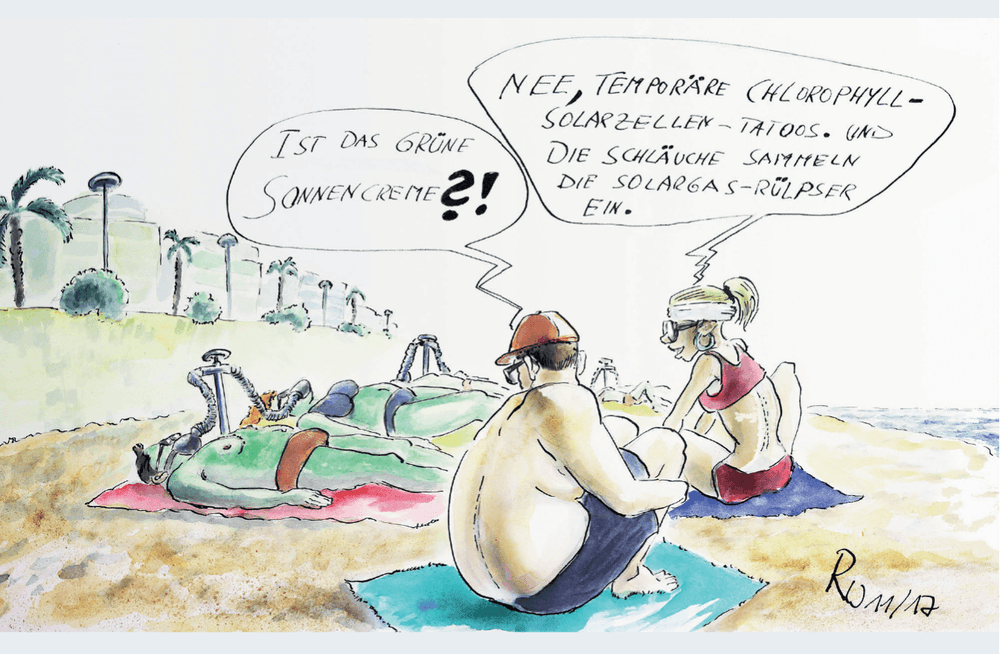 IST DAS GRÜNE
SONNENCREME?!
NEE, TEMPORÄRE CHLOROPHYLL-
SOLARZELLEN-TATOOS. UND
DIE SCHLÄUCHE SAMMELN
DIE SOLARGAS-RÜLPSER
EIN.
RW 11/17